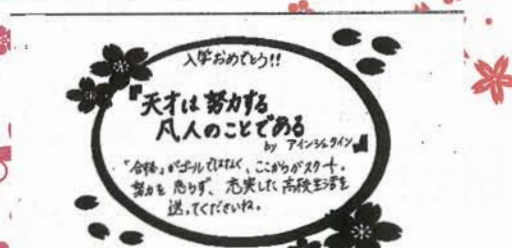 入学おめでとう!!
『天才は努力する
凡人のことである
by アインシュタイン』
「合格」がゴールではなく、ここからがスタート。
努力を怠らず、充実した高校生活を
送ってくださいね。